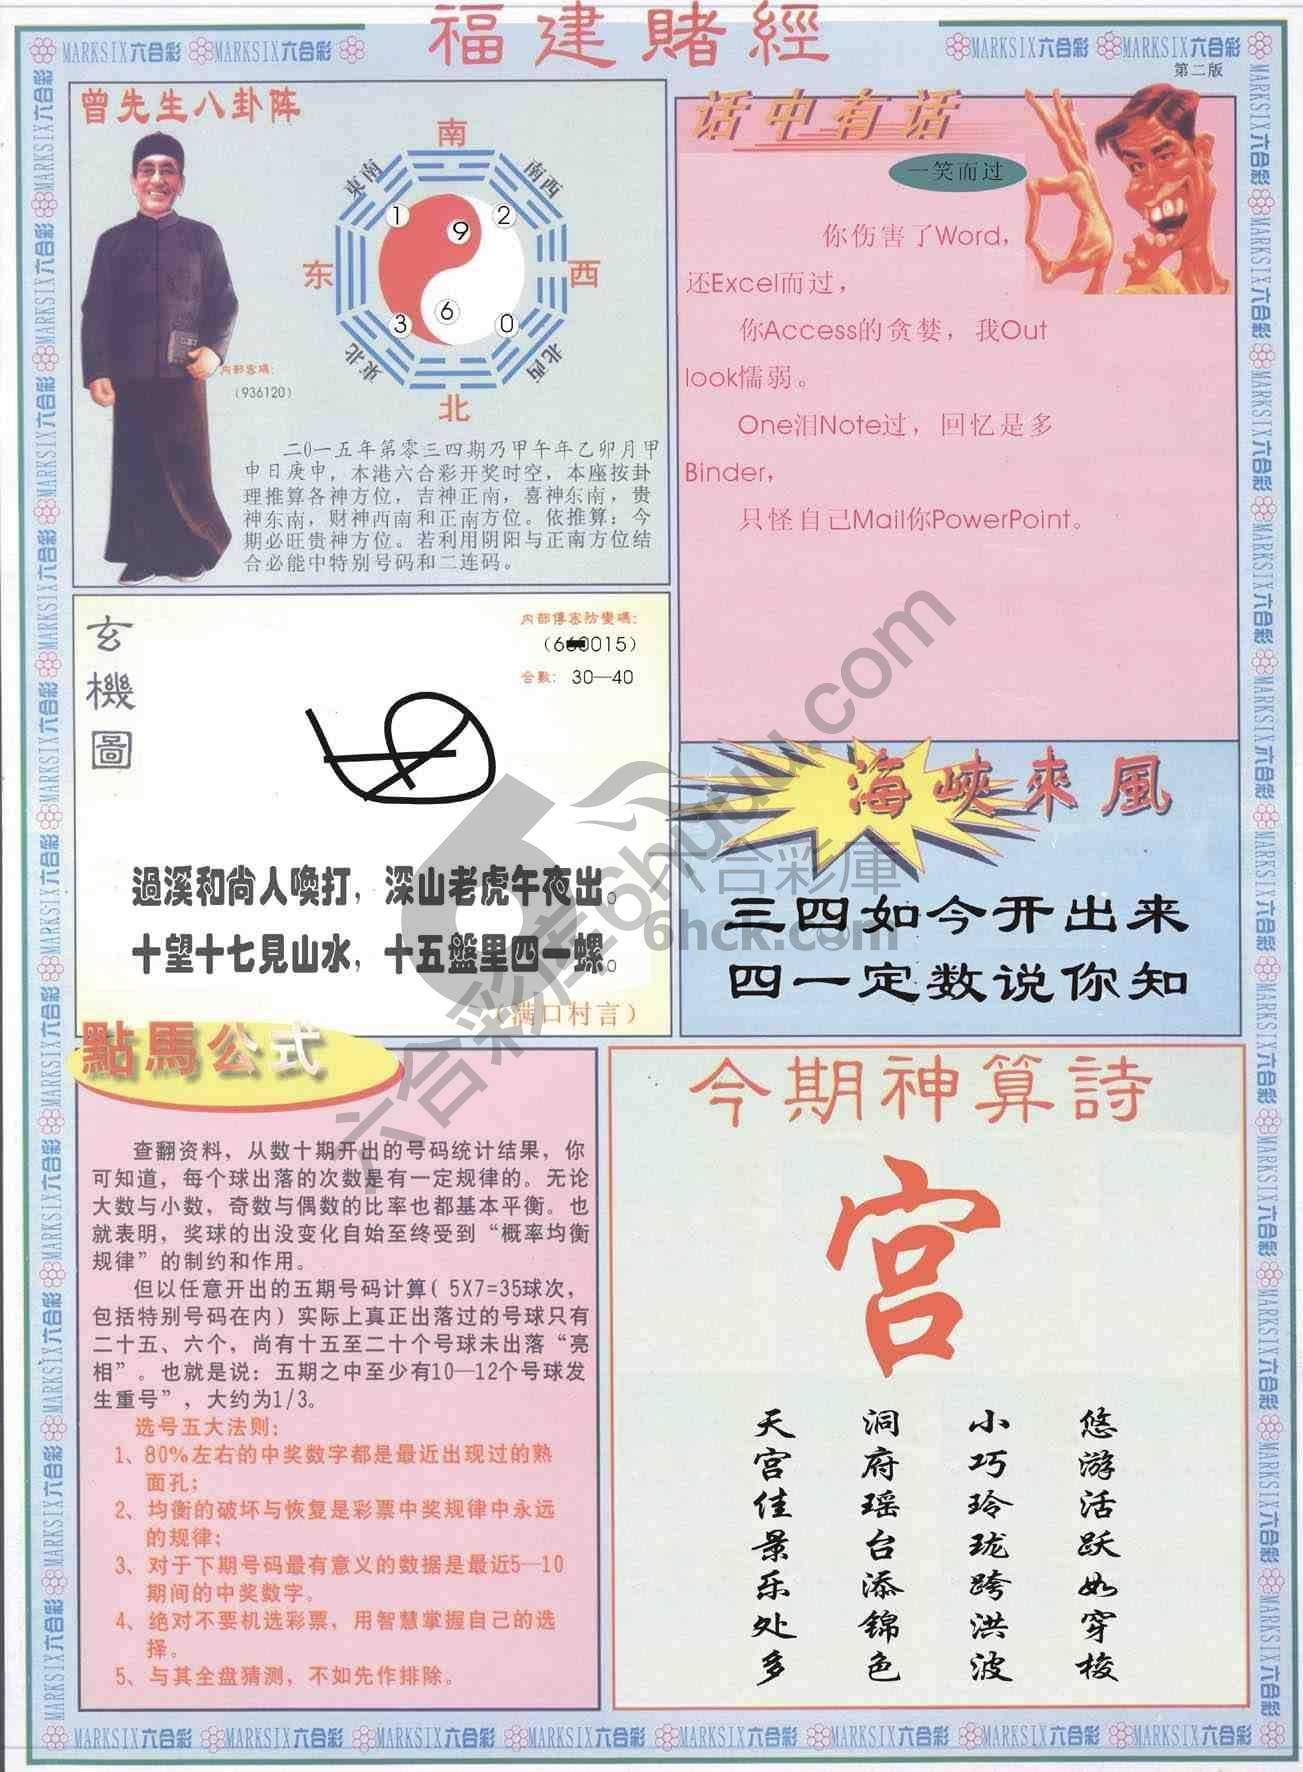 福建賭經
MARKSIX六合彩 MARKSIX六合彩
MARKSIX六合彩 MARKSIX六合彩
第二版
曾先生八卦阵
南
東南
南西
1
9
2
东
西
3
6
0
東北
北西
北
内部密碼：
（936120）
二0一五年第零三四期乃甲午年乙卯月甲
申日庚申，本港六合彩开奖时空，本座按卦
理推算各神方位，吉神正南，喜神东南，贵
神东南，财神西南和正南方位。依推算：今
期必旺贵神方位。若利用阴阳与正南方位结
合必能中特别号码和二连码。
话中有话
一笑而过
你伤害了Word，
还Excel而过，
你Access的贪婪，我Out
look懦弱。
One泪Note过，回忆是多
Binder，
只怪自己Mail你PowerPoint。
玄機圖
内部傳密防變碼：
合數：30—40
過溪和尚人喚打，深山老虎午夜出。
十望十七見山水，十五盤里四一螺。
（满口村言）
海峽來風
三四如今开出来
四一定数说你知
六合彩庫
6hck.com
六合彩库6huuu.com
點馬公式
查翻资料，从数十期开出的号码统计结果，你
可知道，每个球出落的次数是有一定规律的。无论
大数与小数，奇数与偶数的比率也都基本平衡。也
就表明，奖球的出没变化自始至终受到“概率均衡
规律”的制约和作用。
但以任意开出的五期号码计算（5X7=35球次，
包括特别号码在内）实际上真正出落过的号球只有
二十五、六个，尚有十五至二十个号球未出落“亮
相”。也就是说：五期之中至少有10—12个号球发
生重号”，大约为1/3。
选号五大法则：
1、80%左右的中奖数字都是最近出现过的熟
面孔；
2、均衡的破坏与恢复是彩票中奖规律中永远
的规律；
3、对于下期号码最有意义的数据是最近5—10
期间的中奖数字。
4、绝对不要机选彩票，用智慧掌握自己的选
择。
5、与其全盘猜测，不如先作排除。
今期神算詩
宫
天宫佳景乐处多
洞府瑶台添锦色
小巧玲珑跨洪波
悠游活跃如穿梭
MARKSIX六合彩 MARKSIX六合彩 MARKSIX六合彩 MARKSIX六合彩 MARKSIX六合彩 MARKSIX六合彩 MARKSIX六合彩 MARKSIX六合彩